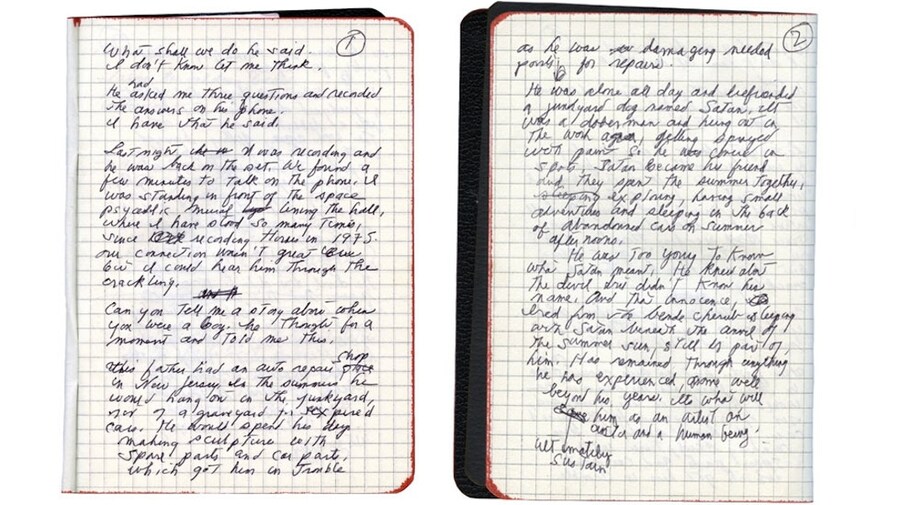 1
What shall we do he said.
I don't know let me think.
had
He asked me three questions and recorded
the answers on his phone.
I have what he said.
Last night I was recording and
he was back on the set. We found a
few minutes to talk on the phone. I
was standing in front of the space
psycedelic mural lining the hall,
where I have stood so many times,
since recording Horses in 1975.
our connection wasn't great
but I could hear him through the
crackling.
Can you tell me a story about when
you were a boy. he thought for a
moment and told me this.
shop
His father had an auto repair
in New Jersey. In the summers he
would hang out in the junkyard,
sort of a graveyard for expired
cars. He would spend his days
making sculpture with
spare parts and car parts,
which got him in trouble
2
as he was damaging needed
parts for repairs.
He was alone all day and befriended
a junkyard dog named Satan. It
was a doberman and hung out in
the work area, getting sprayed
with paint so he was covered in
spots. Satan became his friend
and they spent the summer together,
exploring, having small
adventures and sleeping in the back
of abandoned cars on summer
afternoons.
He was too young to know
what Satan meant. He knew about
the devil but didn't know his
name. And that innocence,
cherub sleeping
with Satan beneath the anvil of
the summer sun, still is part of
him. Has remained through anything
he has experienced, some well
beyond his years. Its what will
him as an artist an
actor and a human being.
ultimately
sustain